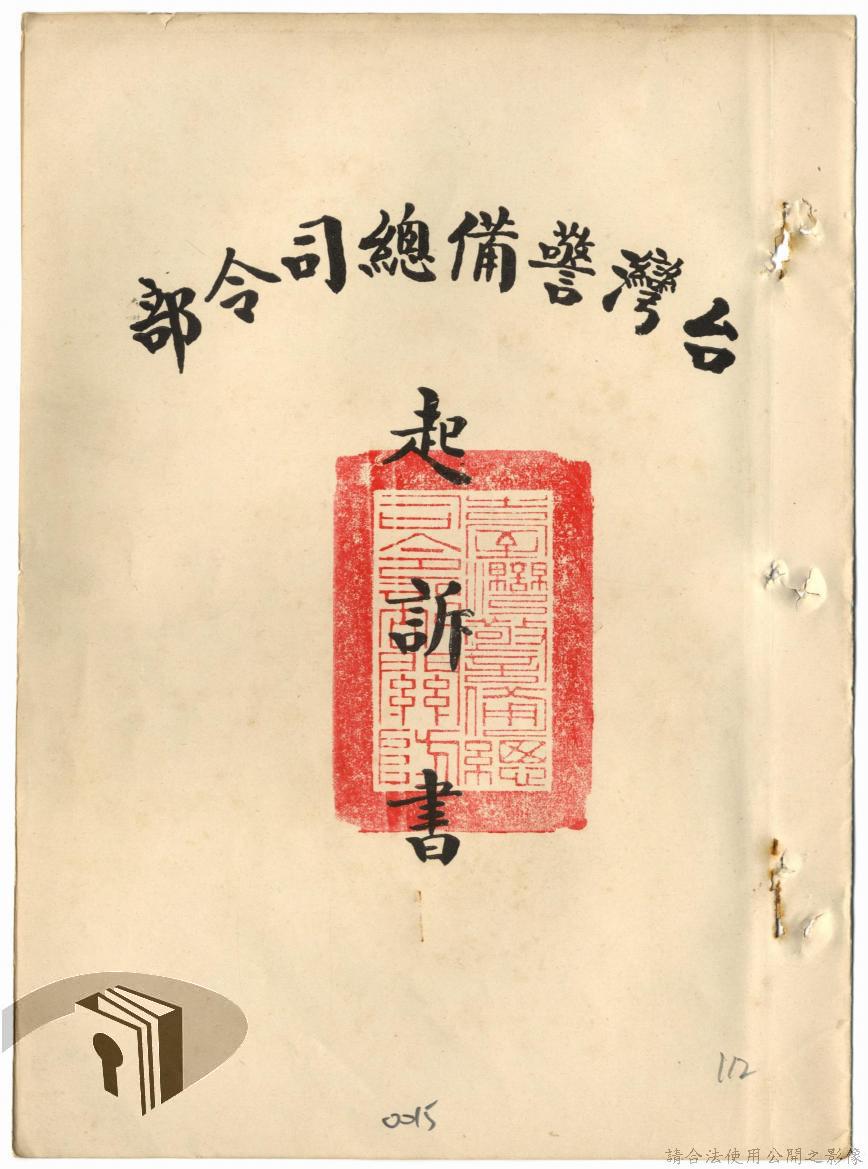 台灣警備總司令部
起訴書
臺灣警備總
司令部關防
112
0015
請合法使用公開之影像